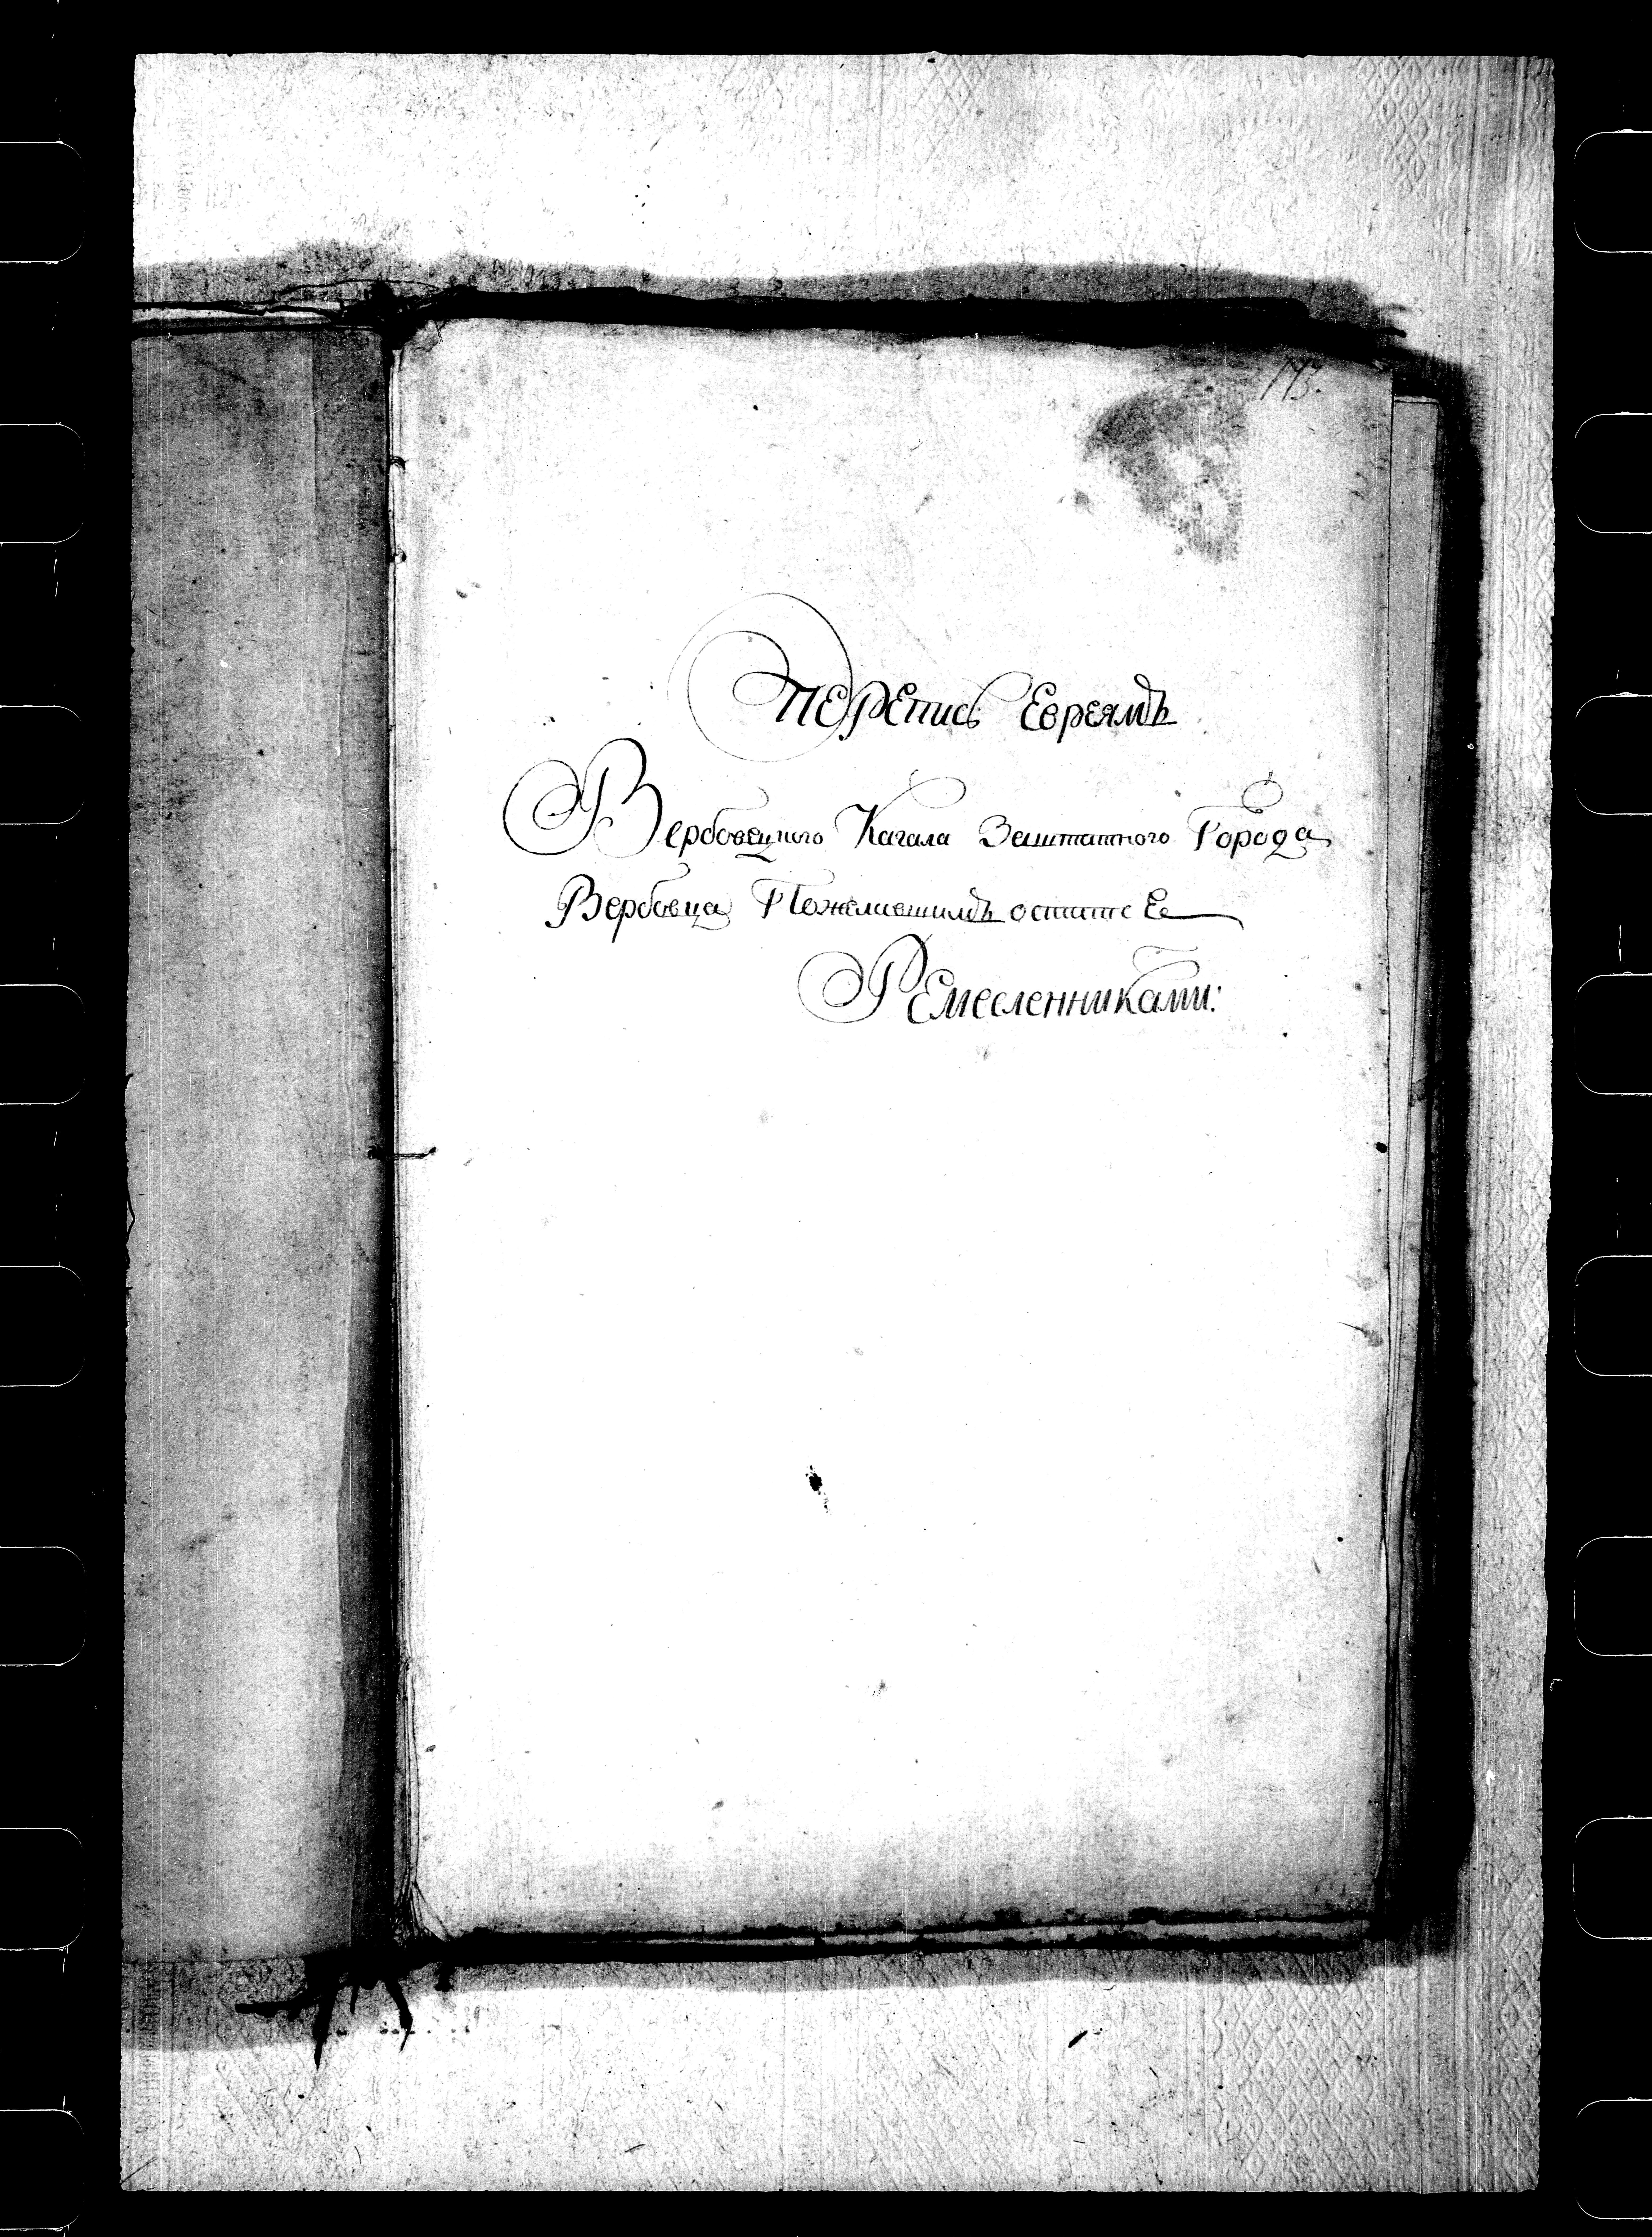 173.
Перепись Евреямъ
Вербовецкого Кагала Заштатного Города
Вербовца Пожелавшимъ остатсе
Ремесленниками: